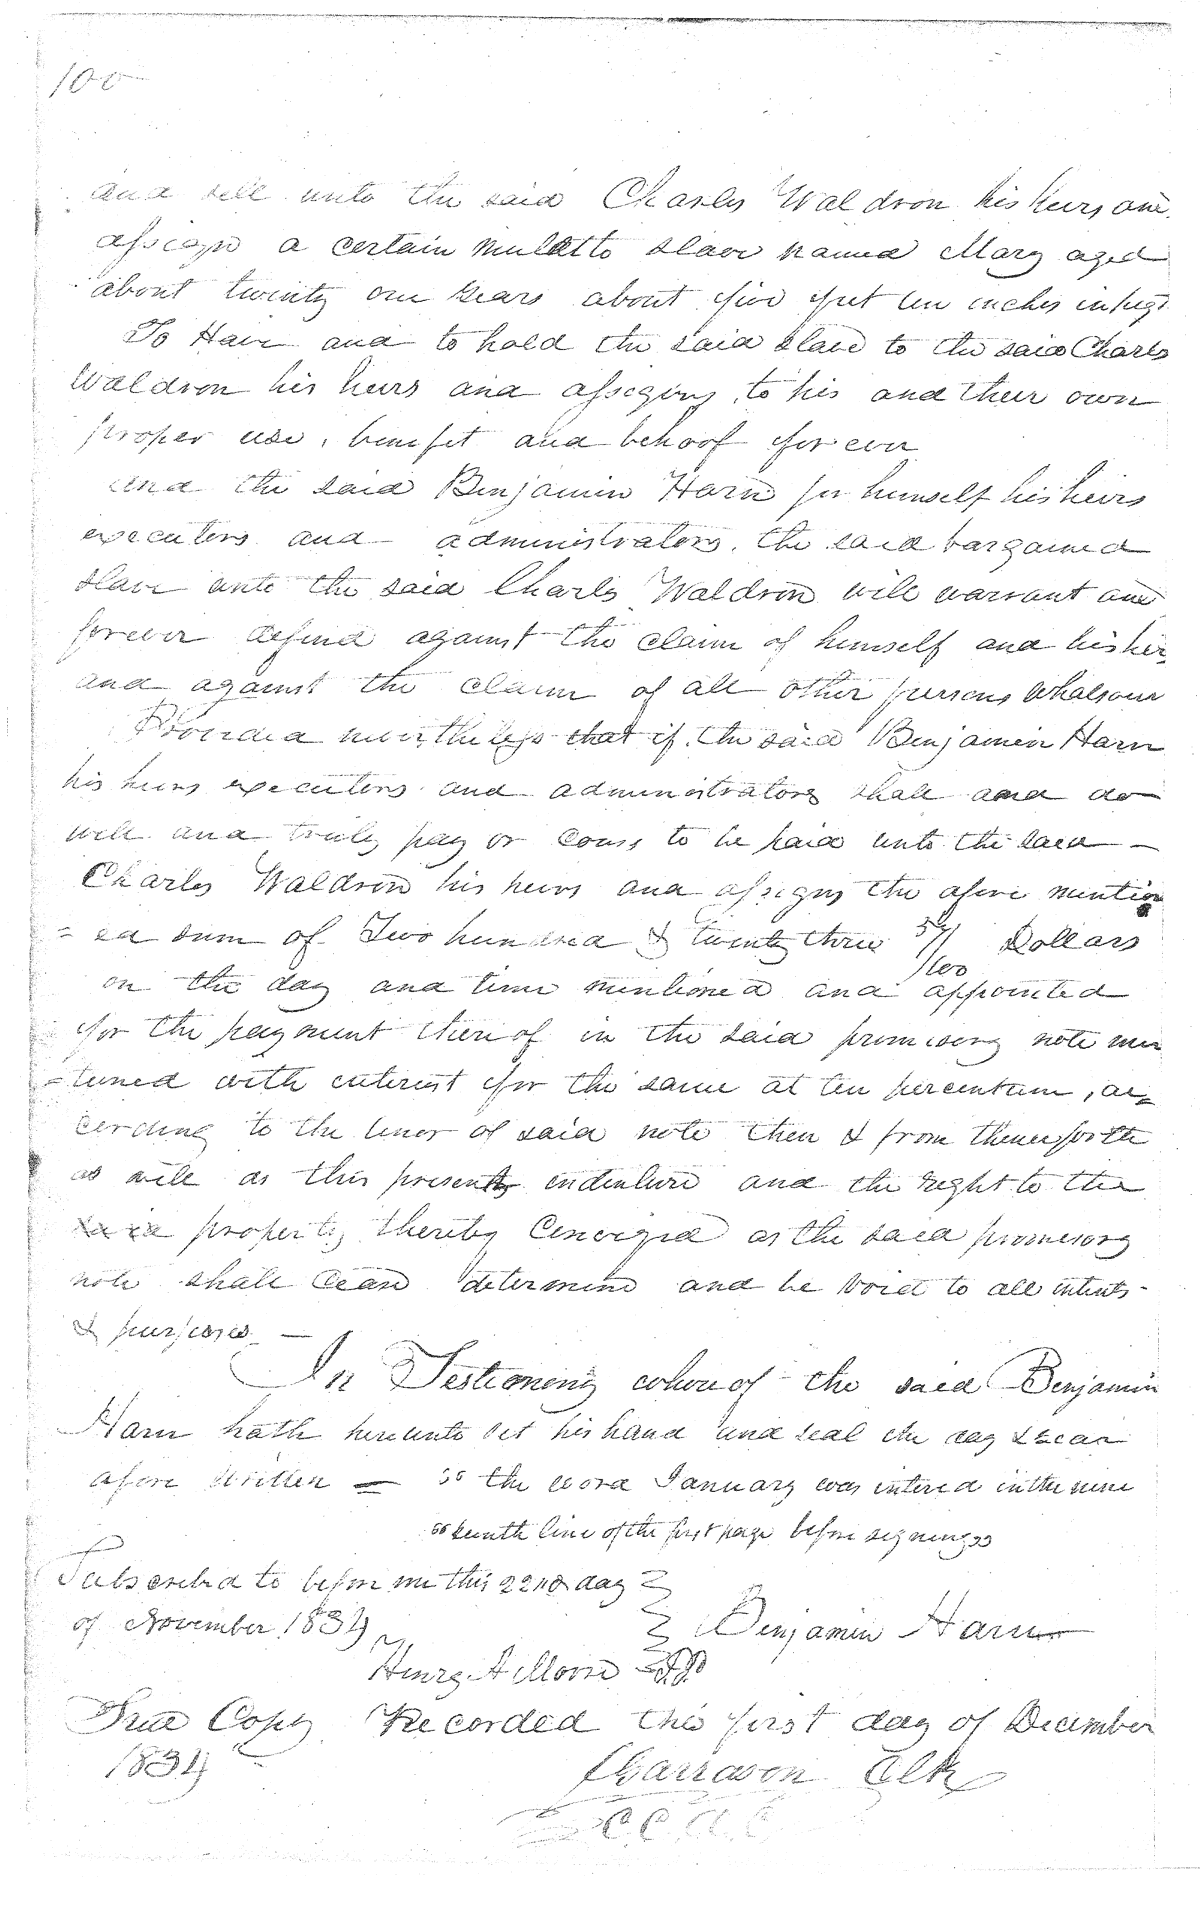 100
and sell unto the said Charles Waldron his heirs and
assigns a certain mulatto slave named Mary aged
about twenty one years about five feet ten inches in
To Have and to hold the said slave to the said Charls
Waldron his heirs and assigns, to his and their own
proper use, benefit and behoof for ever
And the said Benjamin Harn for himself his heirs
executors and administrators, the said bargained
slave unto the said Charls Waldron will warrant and
forever defend against the claim of himself and his heirs
and against the claim of all other persons whatsoever
Provided nevertheless that if the said Benjamin Harn
his heirs executors and administrators shall and do
well and truly pay or cause to be paid unto the said —
Charles Waldron his heirs and assigns the afore mention
= ed sum of Two hundred & twenty three /100 Dollars
on the day and time mentioned and appointed
for the payment there of in the said promisory note men
=tioned with interest for the same at ten percentum, ac=
cording to the tenor of said note then & from thenceforth
as well as this present indenture and the right to the
said property thereby Conveyed as the said promisory
note shall Cease determine and be Void to all intents
& purposes —
In Testimony whereof the said Benjamin
Harn hath hereunto set his hand and seal the day & year
afore written — "the word January was intered in the nine
"teenth line of the first page before signing"
Subscribed to before me this 22nd day
of November 1834
Benjamin Harn
Henry A Moore J.P.
True Copy Recorded this first day of December
1834
Garrason Clk
C.C.